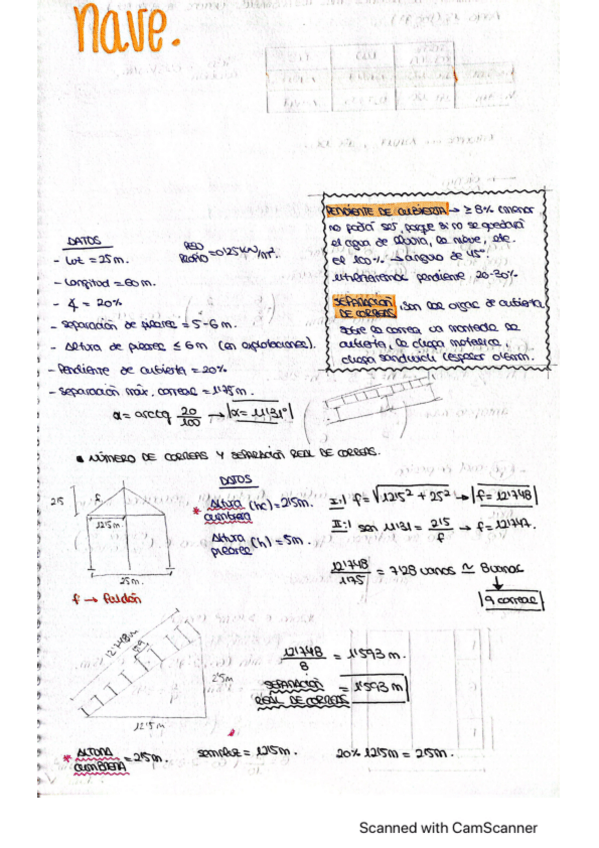 nave.
PENDIENTE DE CUBIERTA → ≥ 8% (menor
no podrá ser, porque si no se quedará
el agua de lluvia, la nieve, etc.
El 100% → ángulo de 45°.
Utilizaremos pendiente 20-30%
SEPARACIÓN DE CORREAS
sobre la correa va montada la
cubierta, la chapa metálica
chapa sandwich
DATOS
- Luz = 25m.
PESO PROPIO = 0'125 kN/m².
- Longitud = 60 m.
- ∡ = 20%
- Separación de pilares = 5-6m.
- Altura de pilares ≤ 6m (en explotaciones).
- Pendiente de cubierta = 20%
- Separación máx. correas = 1'75 m.
α = arctg 20/100 → α = 11'31°
• NÚMERO DE CORREAS Y SEPARACIÓN REAL DE CORREAS.
DATOS
* Altura cumbrera (hc) = 2'5m.
Altura pilares (h) = 5m.
2'5
f
12'5m.
25m.
f → faldón
I:| f = √12'5² + 2'5² → f = 12'748
II:| sen 11'31 = 2'5/f → f = 12'747.
12'748/1'75 = 7'28 vanos ≃ 8 vanos
↓
9 correas
12'748m
1'59
2'5m
12'5m
12'748/8 = 1'593 m.
SEPARACIÓN REAL DE CORREAS = 1'593 m
* ALTURA CUMBRERA = 2'5m.
semiluz = 12'5m.
20% 12'5m = 2'5m.
Scanned with CamScanner